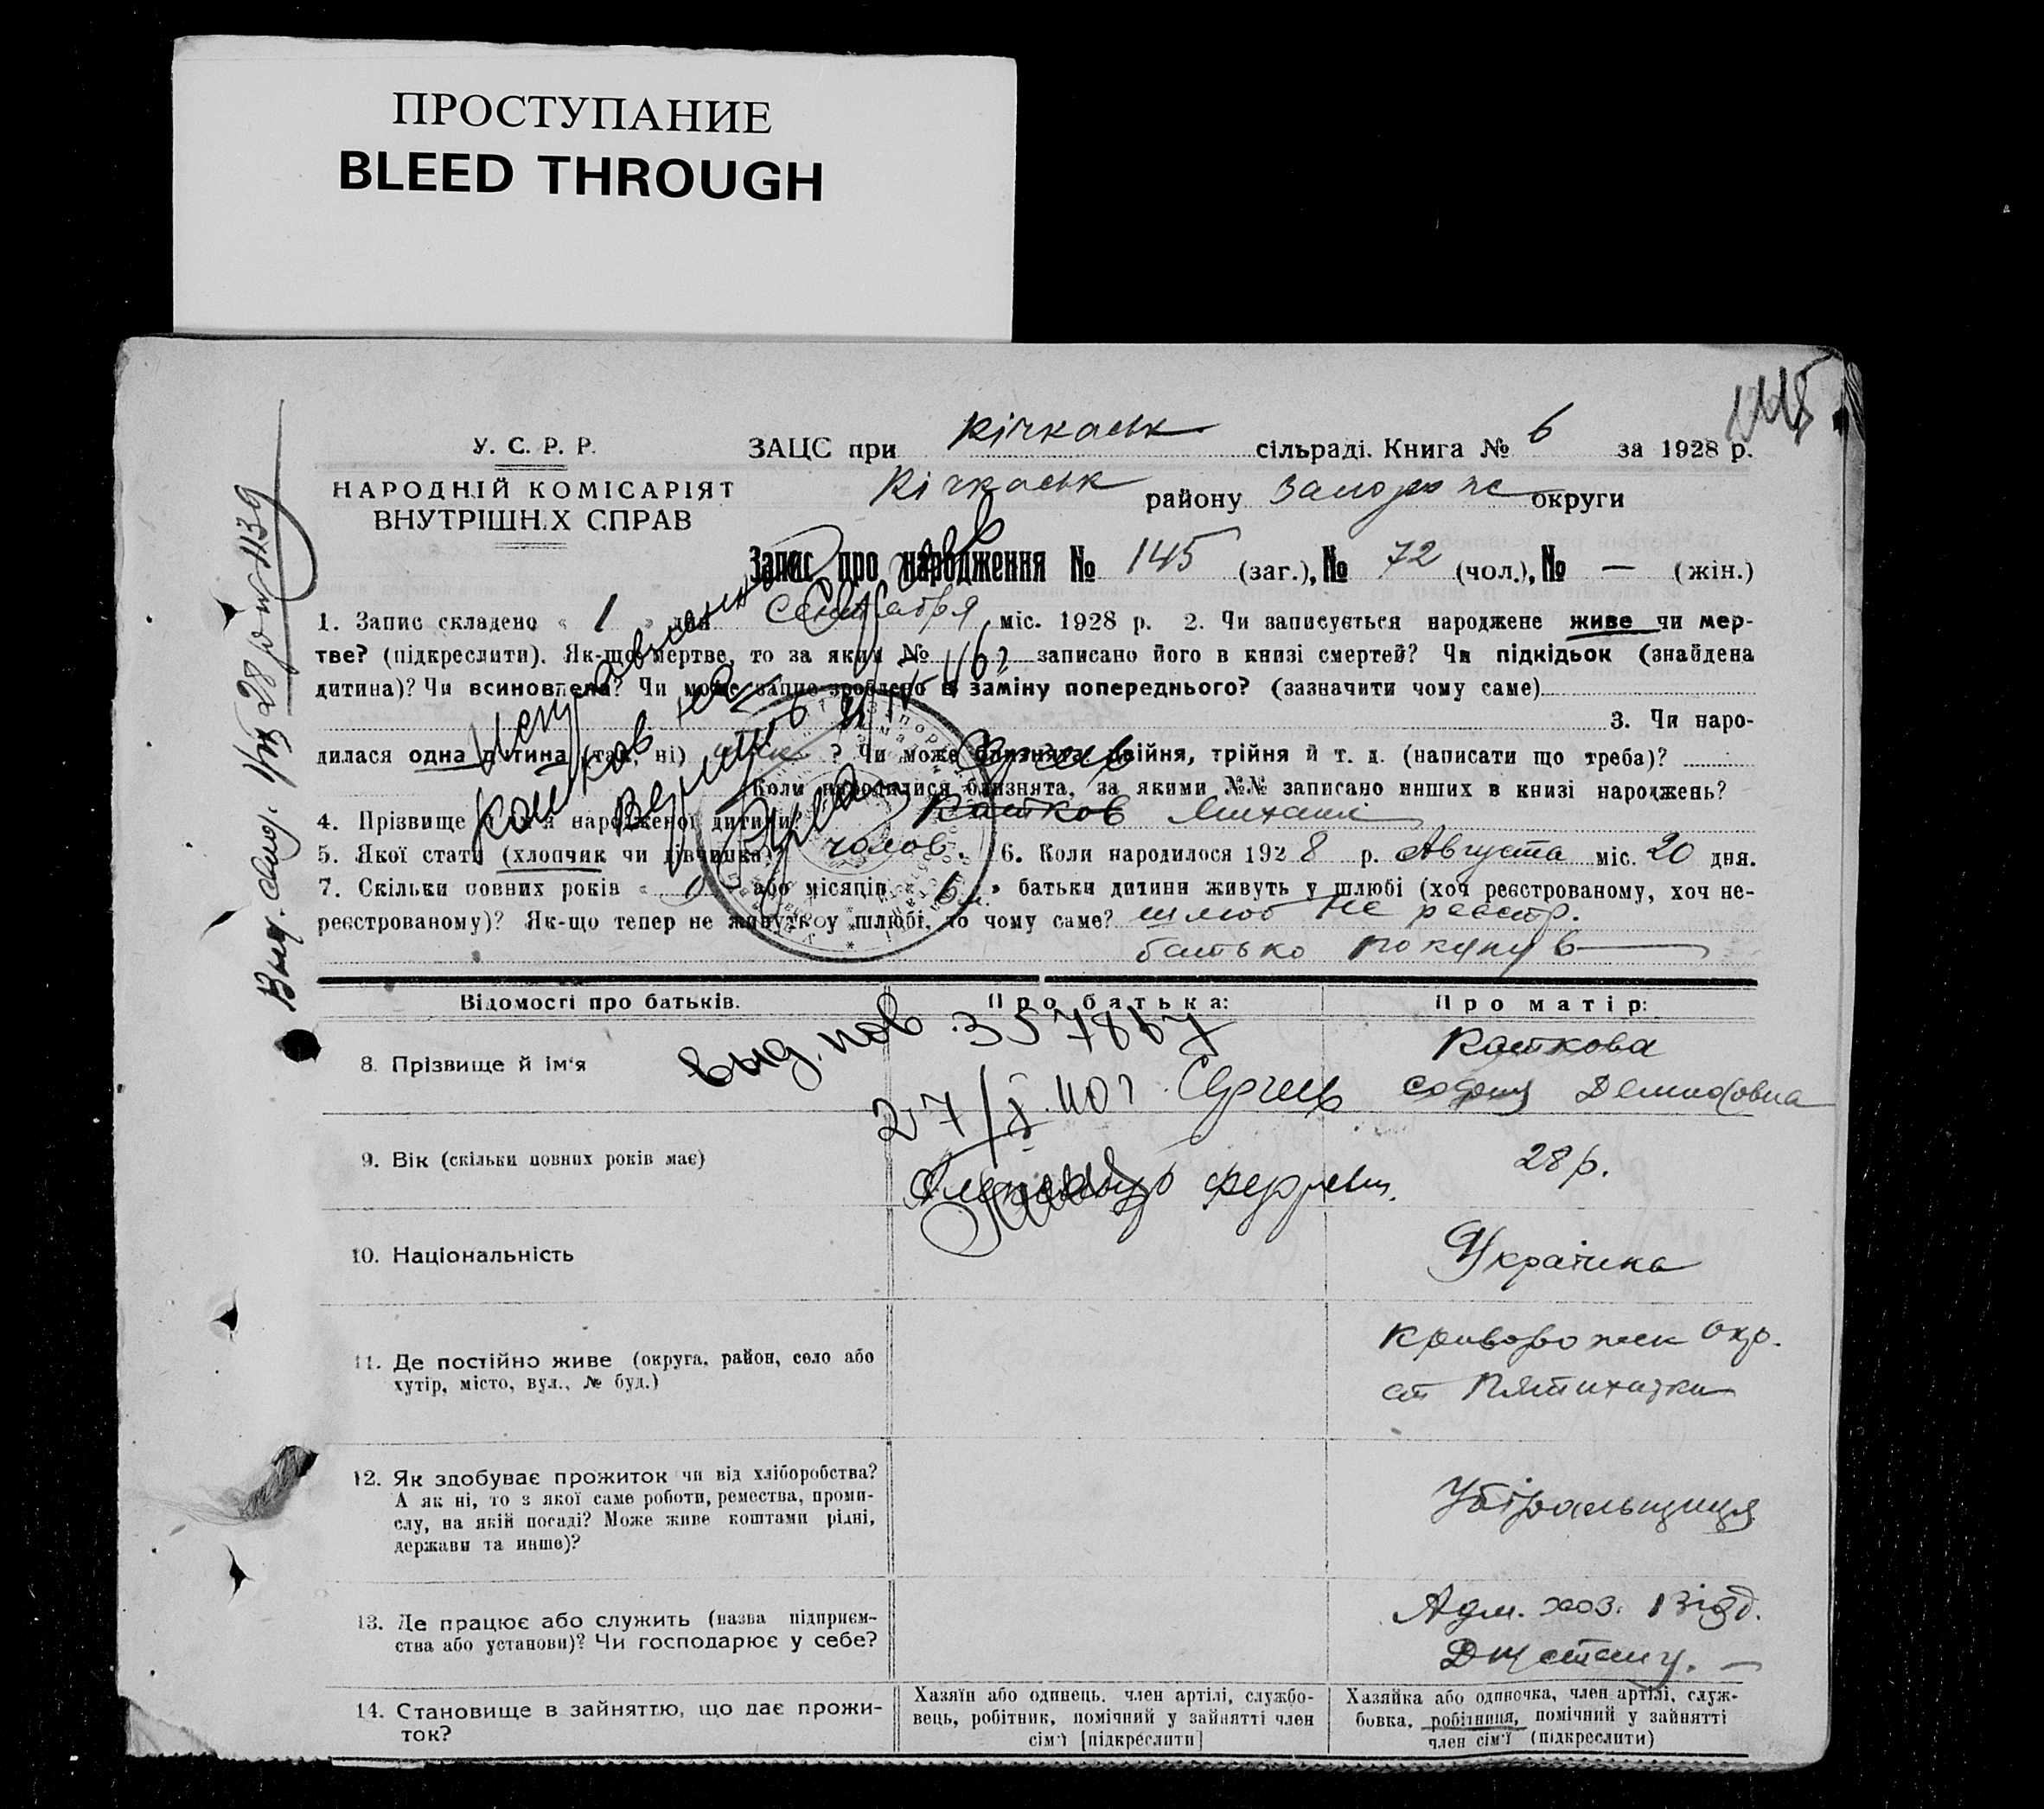 ПРОСТУПАНИЕ
BLEED THROUGH
У. С. Р. Р.
НАРОДНІЙ КОМІСАРІЯТ
ВНУТРІШН.Х СПРАВ
ЗАЦС при Кічкаськ сільраді. Книга № 6 за 1928 р.
Кічкаськ району Запорож округи
Запис про народження № 145 (заг.), № 72 (чол.), № — (жін.)
1. Запис складено « 1 » дня Сентября міс. 1928 р. 2. Чи записується народжене живе чи мер-
тве? (підкреслити). Як-що мертве, то за яким № записано його в книзі смертей? Чи підкідьок (знайдена
дитина)? Чи всиновлена? Чи може запис зроблено в заміну попереднього? (зазначити чому саме)
3. Чи наро-
дилася одна дитина (так, ні) ? Чи може близнята, двійня, трійня й т. д. (написати що треба)?
Коли народилися близнята, за якими №№ записано инших в книзі народжень?
4. Прізвище й ім'я народженої дитини? Катков Михаил
5. Якої стати (хлопчик чи дівчинка)? чолов. 6. Коли народилося 1928 р. Августа міс. 20 дня.
7. Скільки повних років « 0 » або місяців батьки дитини живуть у шлюбі (хоч реєстрованому, хоч не-
реєстрованому)? Як-що тепер не живуть у шлюбі, то чому саме? шлюб не реєстр.
батько покинув
Відомості про батьків.
Про батька:
Про матір:
8. Прізвище й ім'я
Выд. пов. 357867
27/X 40 г. Сергеев
Каткова
София Демидовна
9. Вік (скільки повних років має)
28 р.
10. Національність
Українка
11. Де постійно живе (округа, район, село або
хутір, місто, вул., № буд.)
Криворожск Окр.
ст Пятихатки
12. Як здобуває прожиток чи від хліборобства?
А як ні, то з якої саме роботи, ремества, проми-
слу, на якій посаді? Може живе коштами рідні,
держави та инше)?
Убіральщиця
13. Де працює або служить (назва підприєм-
ства або установи)? Чи господарює у себе?
Адм. хоз. Відд.
14. Становище в зайняттю, що дає прожи-
ток?
Хазяїн або одинець, член артілі, службо-
вець, робітник, помічний у зайнятті член
сім'ї [підкреслити]
Хазяйка або одиночка, член артілі, служ-
бовка, робітниця, помічний у зайнятті
член сім'ї (підкреслити)